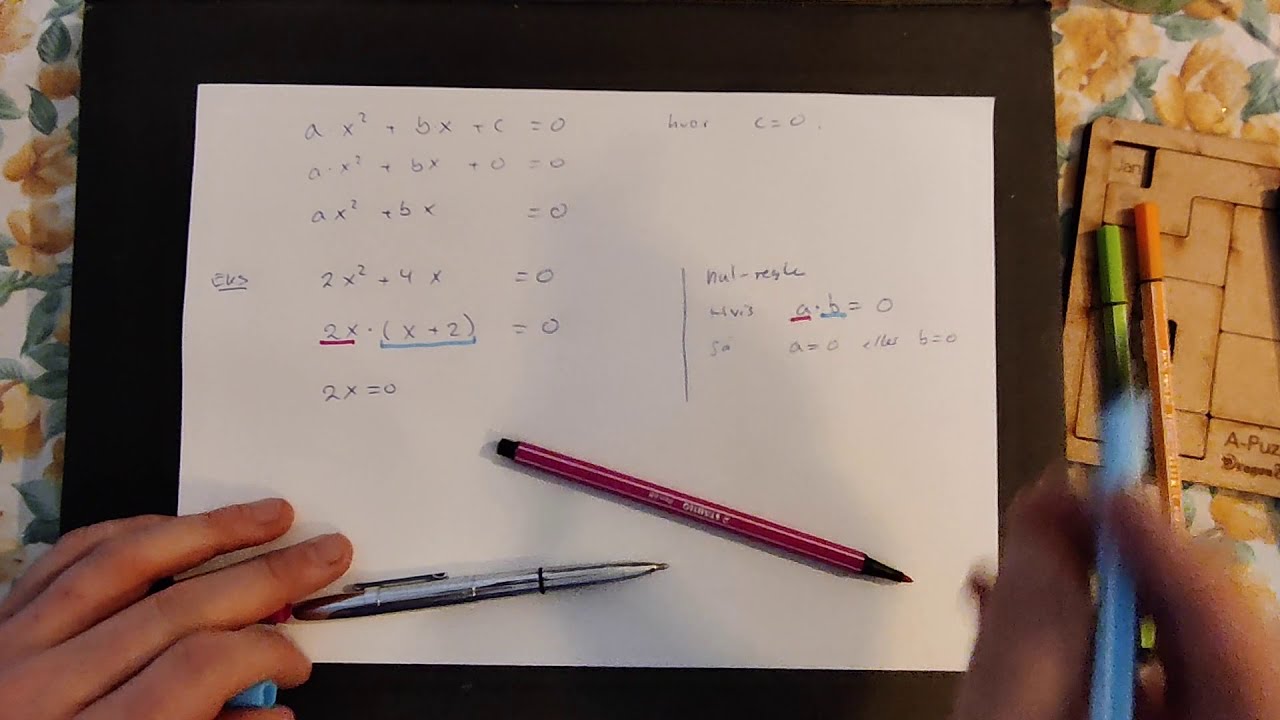 ax² + bx + c = 0 hvor c = 0.
a·x² + bx + 0 = 0
ax² + bx = 0
EKS 2x² + 4x = 0
2x·(x+2) = 0
2x = 0
nul-regle
hvis a·b = 0
så a=0 eller b=0
Jan
A-Puz
STABILO